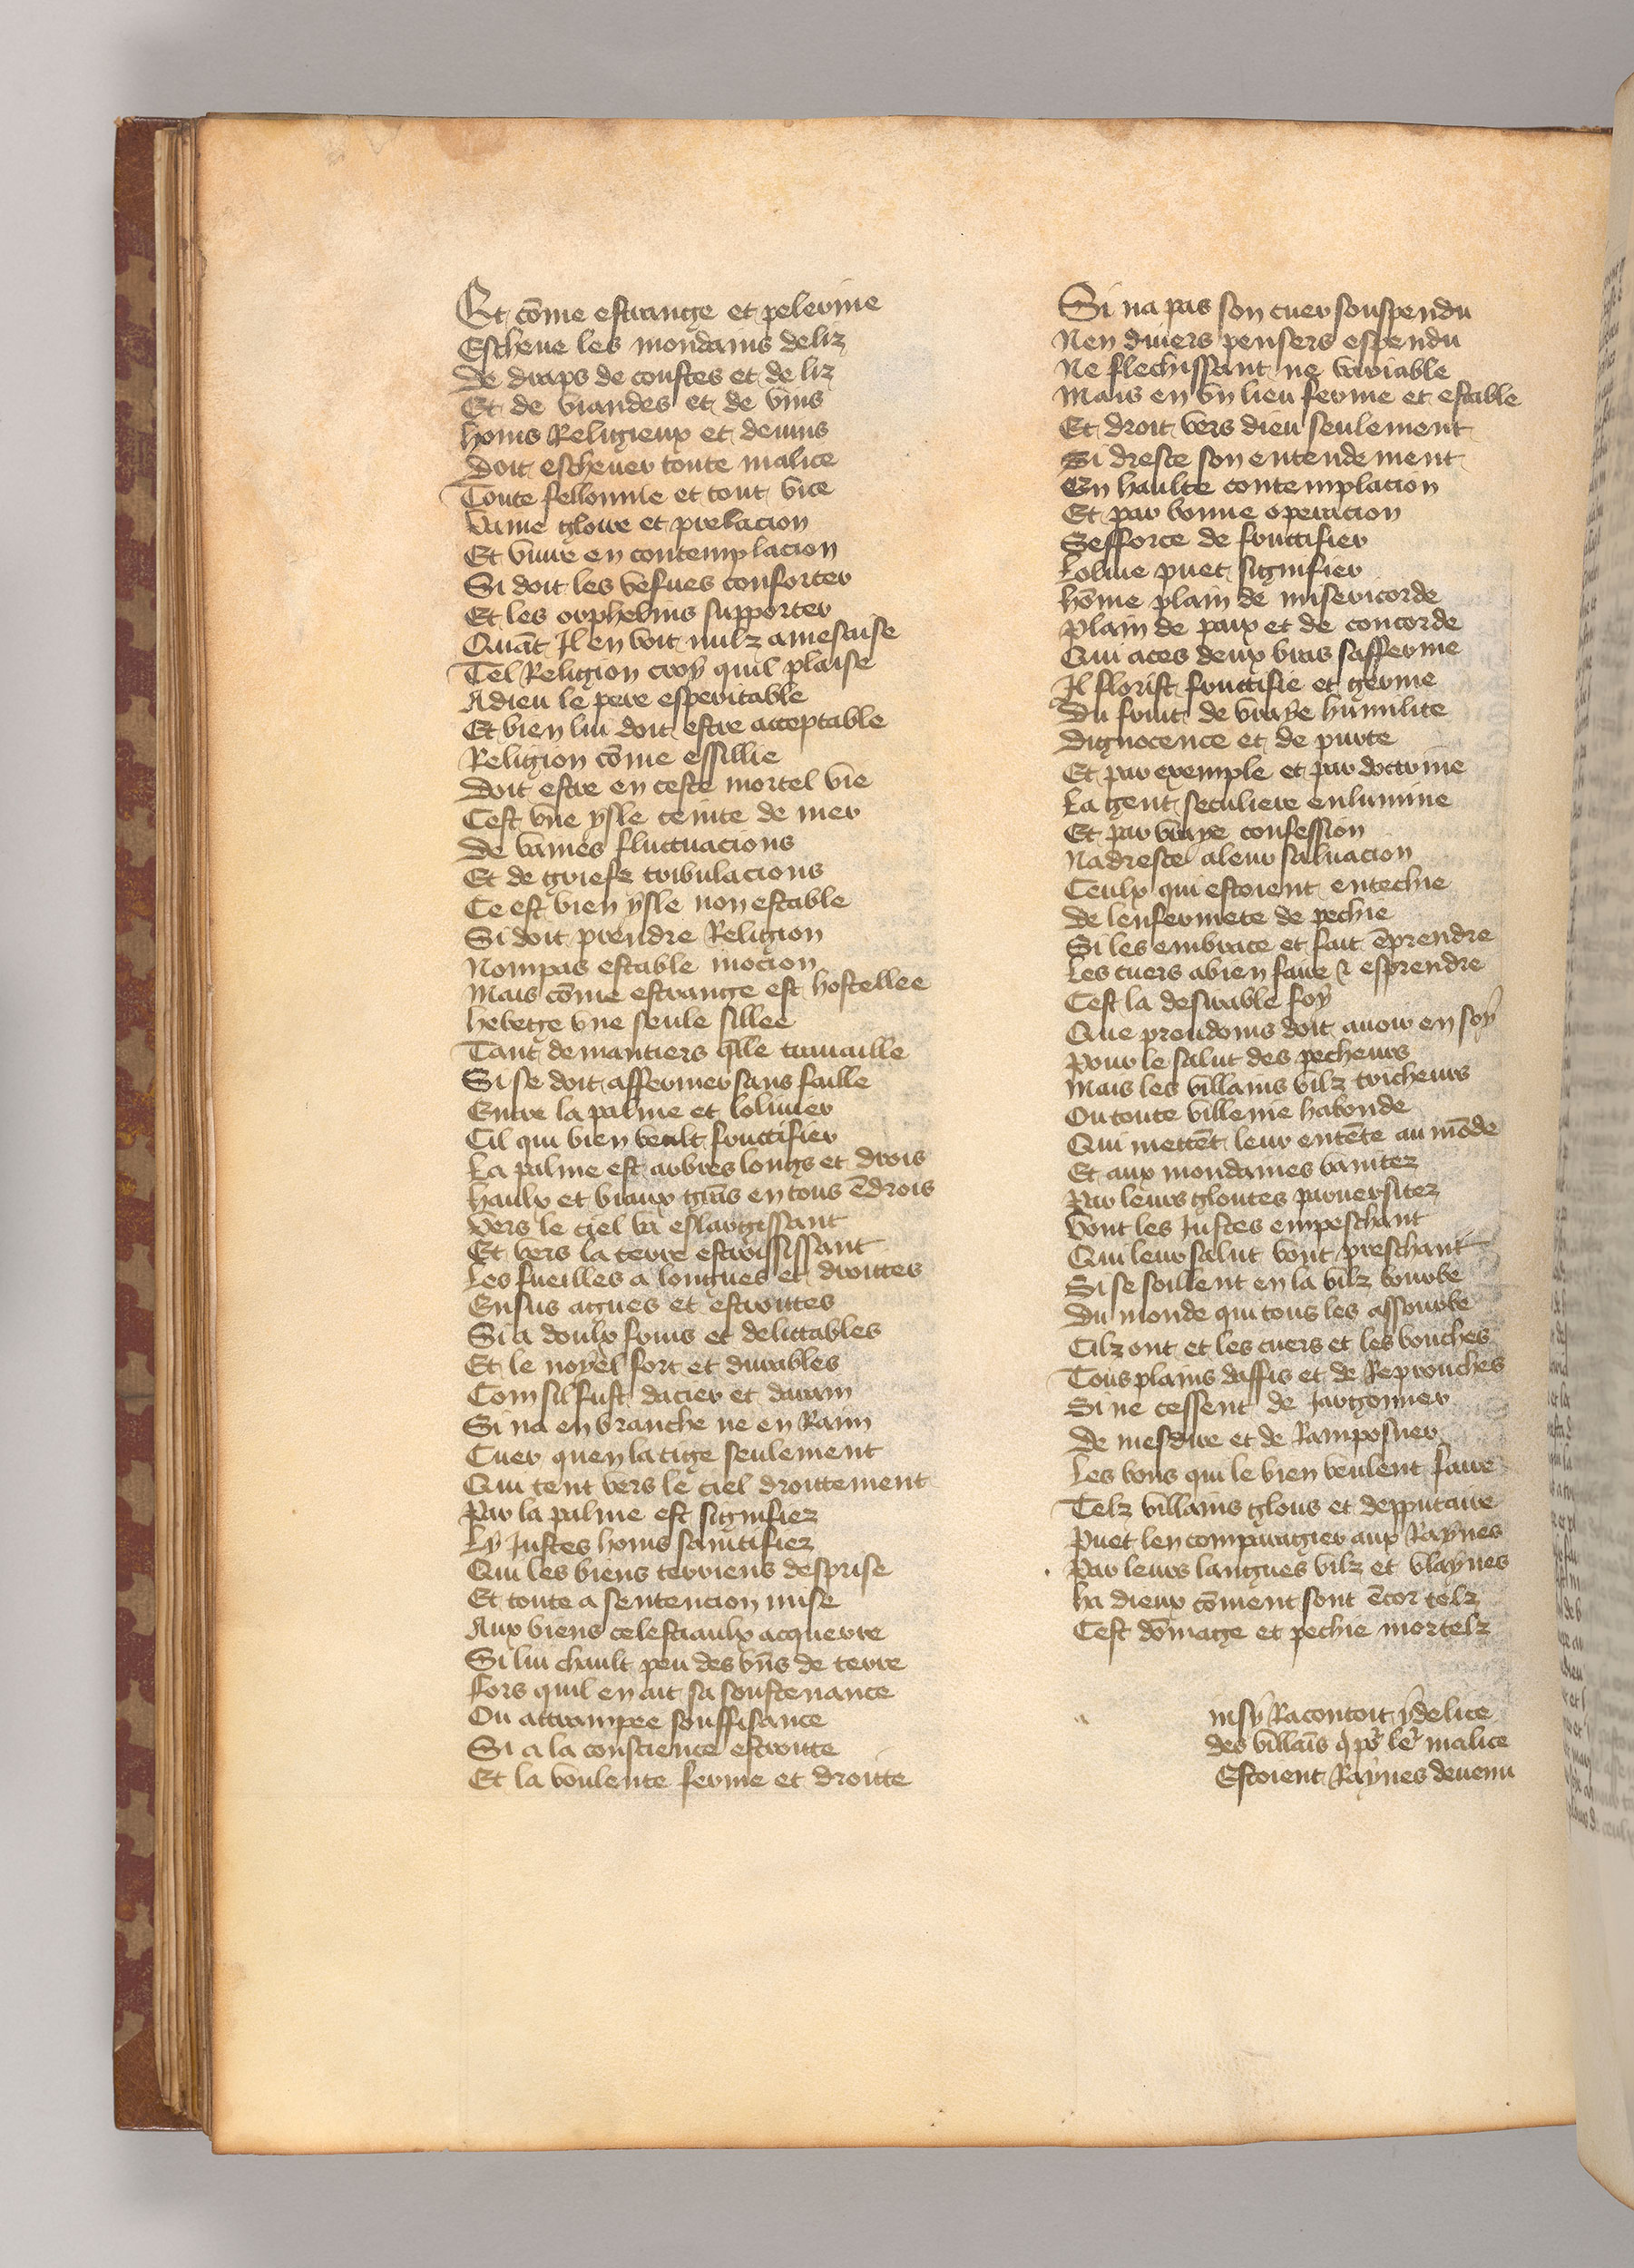 Et cōme estrange et pelerine
Escheue les mondains deliz
De draps de coustes et de liz
Et de viandes et de vins
homs Religieux et deuins
Doit escheuer toute malice
Toute fellonnie et tout vice
Vaine gloire et prelacion
Et viure en contemplacion
Si doit les vesues conforter
Et les orphelins supporter
Quāt Il en voit nulz a mesaise
Tel Religion croy quil plaise
A dieu le pere esperitable
Et bien lui doit estre acceptable
Religion cōme essillie
Doit estre en ceste mortel vie
Cest vne ysle ceinte de mer
De vaines fluctuacions
Et de griefz tribulacions
Ce est bien ysle non estable
Si doit prendre Religion
Nompas estable mocion
Mais cōme estrange est hostellee
heberge vne seule sillee
Tant de mantiers qlle trauaille
Si se doit affermer sans faille
Entre la palme et loliuier
Cil qui bien veult fructifier
La palme est arbres longs et drois
haulx et biaux grās en tous ēdrois
Vers le ciel va eslargissant
Et vers la terre estroississant
Les fueilles a longues et droittes
Ensus agues et estroittes
Si a doulx fruis et delittables
Et le noyel fort et durables
Com sil fust dacier et darain
Si na en branche ne en Raim
Cuer quen la tige seulement
Qui tent vers le ciel droittement
Par la palme est signifiez
Ly Justes homs saintifiez
Qui les biens terriens desprise
Et toute a sentencion mise
Aux biens celestiaulx acquerre
Si lui chault peu des bn̄s de terre
Fors quil en ait sa soustenance
Ou attrampee souffisance
Si a la conscience estroitte
Et la voulente ferme et droitte
Si na pas son cuer souspendu
Nen diuers pensers espendu
Ne flechissant ne variable
Mais en vn lieu ferme et estable
Et droit vers dieu seulement
Si dresce son entendement
En haulte contemplacion
Et par bonne operacion
Sefforce de fructifier
Loliue puet signifier
hōme plain de misericorde
Plain de paix et de concorde
Qui a ces deux bras safferme
Il florist fructifie et germe
Du fruit de vraye humilite
Dignocence et de purte
Et par exemple et par doctrine
La gent seculiere enlumine
Et par vraye confession
Radresce a leur saluacion
Ceulx qui estoient entechie
De lenfermete de pechie
Si les embrace et fait ēprendre
Les cuers a bien faire & esprendre
Cest la desirable foy
Que preudoms doit auoir en soy
Pour le salut des pecheurs
Mais les villains vilz tricheurs
Ou toute villenie habonde
Qui mettēt leur entēte au mōde
Et aux mondaines vanitez
Par leurs gloutes paruersitez
Vont les Justes empeschant
Qui leur salut vont preschant
Si se soillent en la vilz bourbe
Du monde qui tous les assourbe
Cilz ont et les cuers et les bouches
Tous plains daffis et de Reprouches
Si ne cessent de Jargonner
De mesdire et de Ramposner
Les bons qui le bien veulent faire
Telz villains glous et depputaire
Puet len comparagier aux Raynes
Par leurs langues vilz et vlaynes
ha dieux cōment sont ēcor telz
Cest dōmage et pechie mortelz
insy Racontoit ydelice
des villais q̄ pr ler malice
Estoient Raynes deuenu